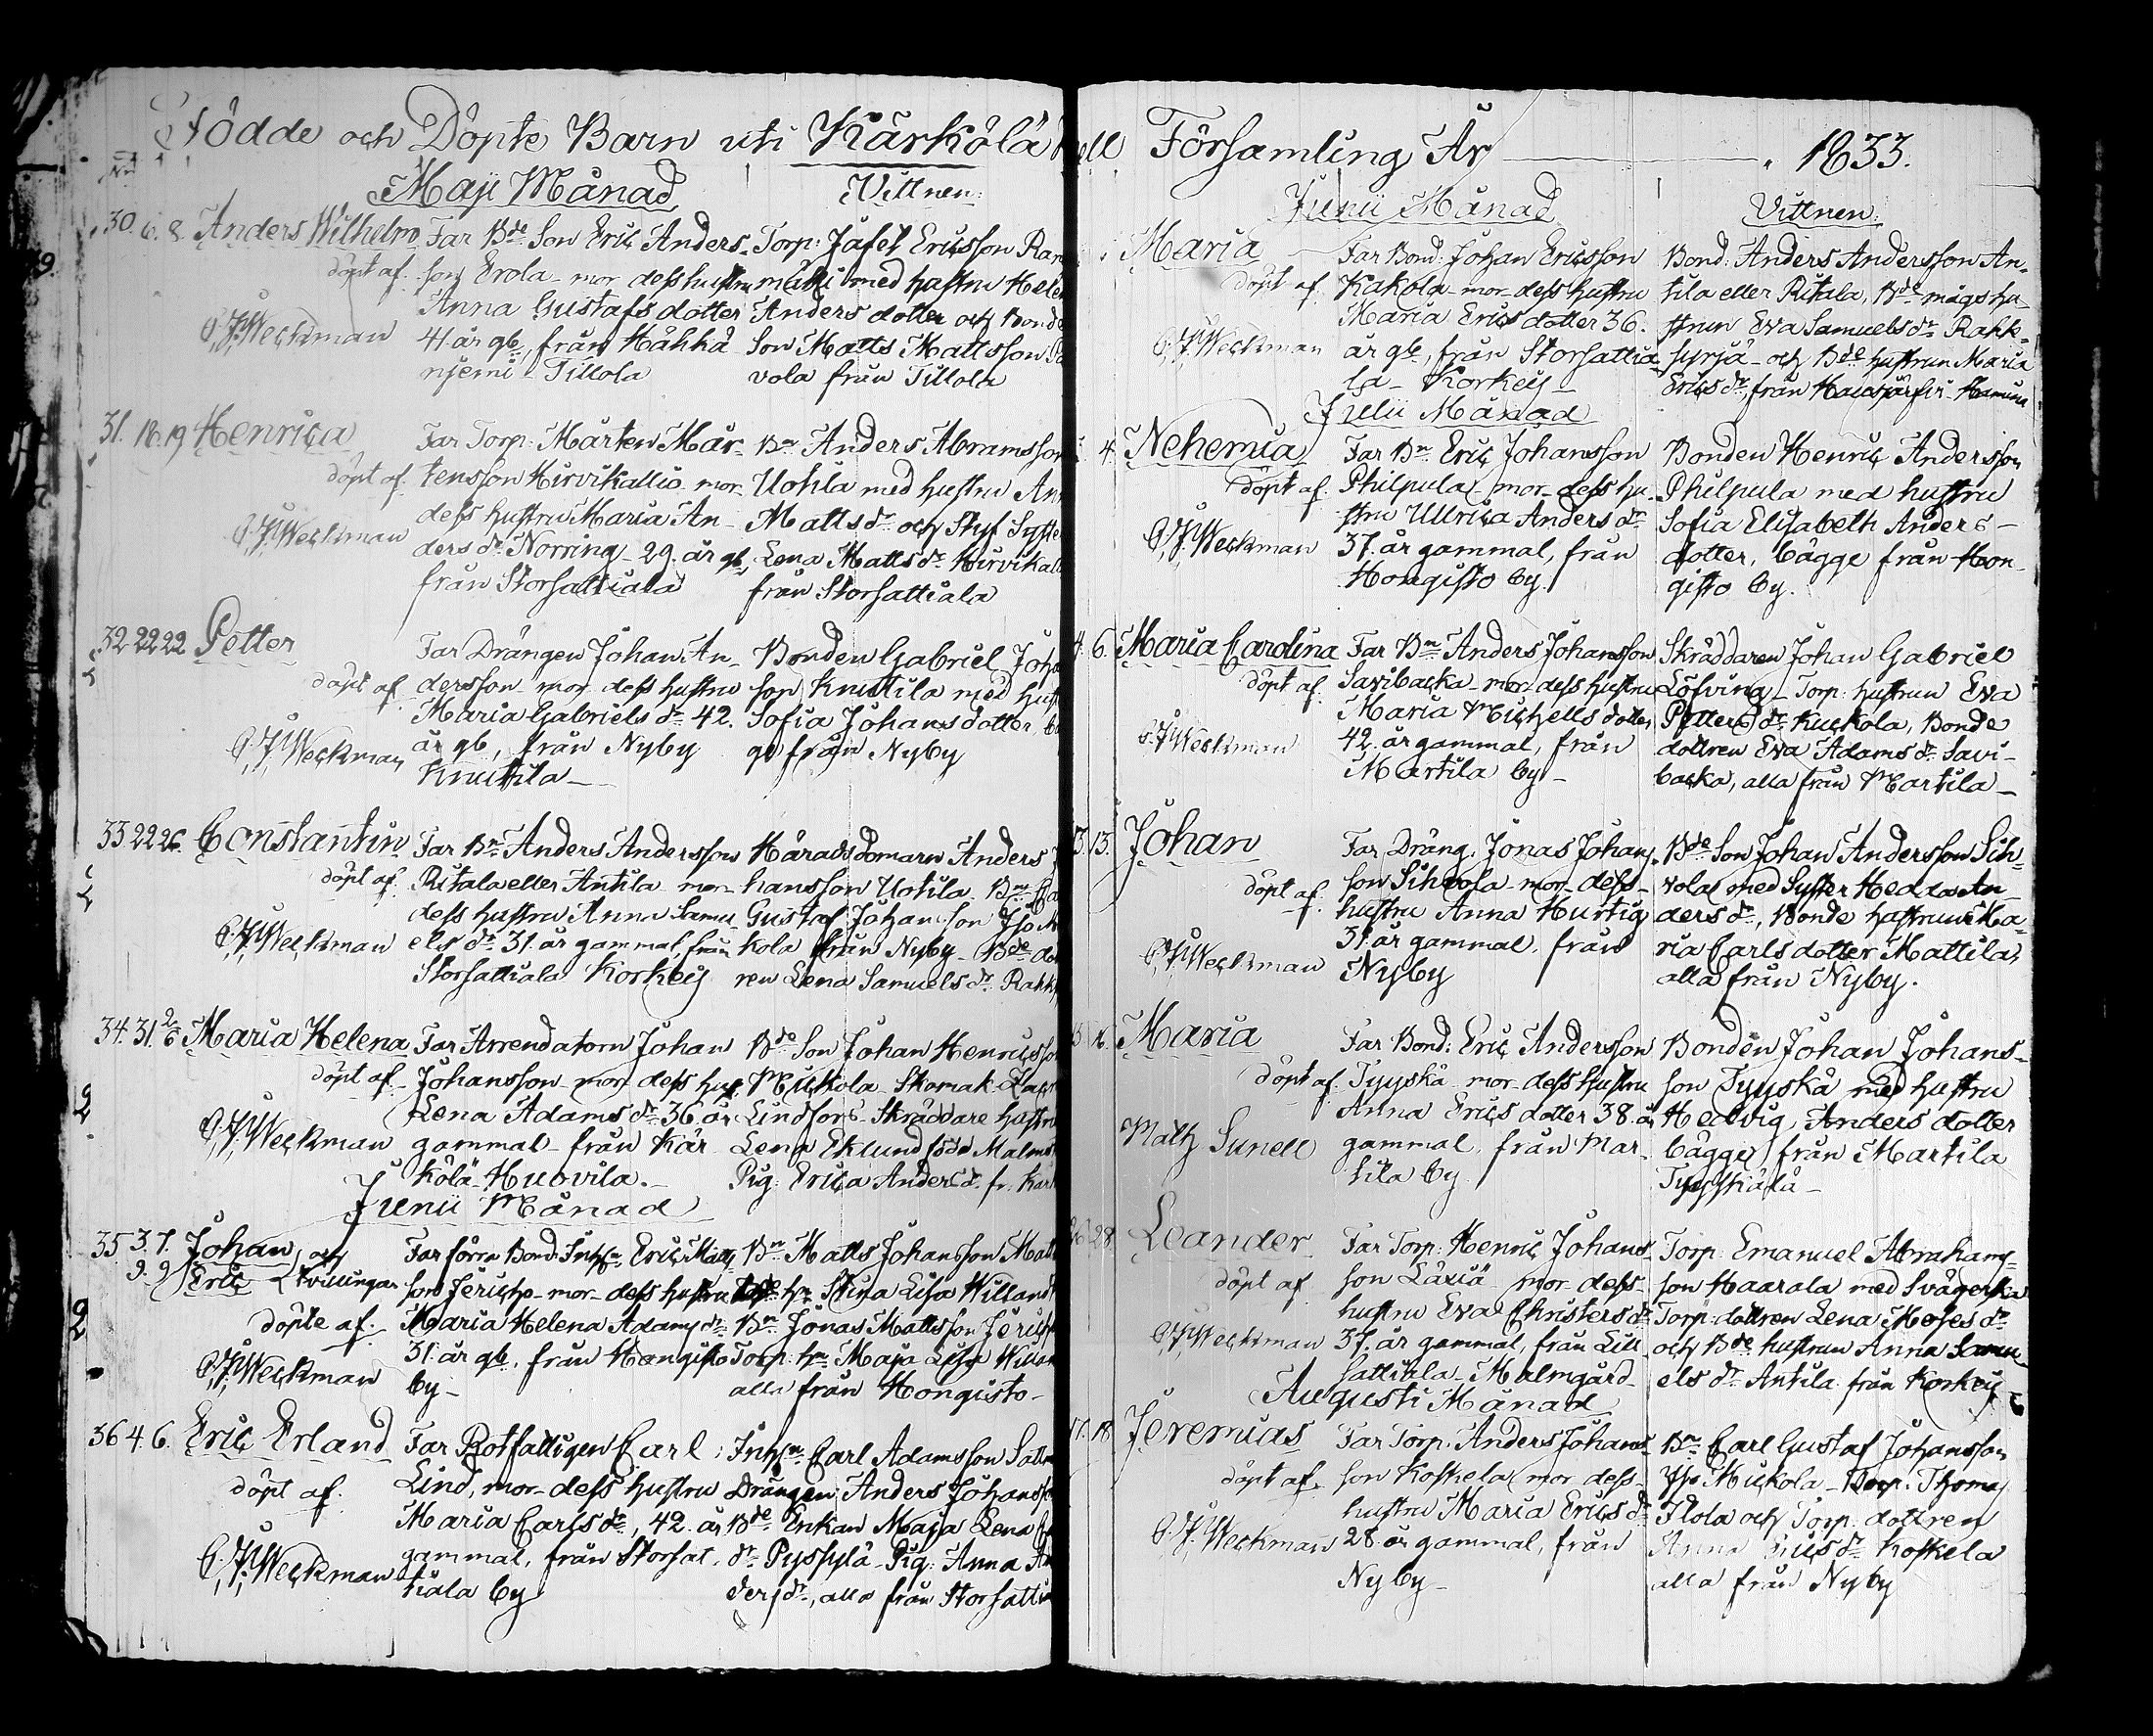 Födde och Döpte Barn uti Kärkölä
Maji Månad Vittnen:
30. 6. 8. Anders Wilhelm Far Bde Son Eric Anders- Torp: Jafet Ericsson
döpt af. son Erola mor dess hustru mäki med hustru
Anna Gustafs dotter Anders dotter och Bonde
C. J. Weckman 41 år gb, från Hähkä Son Matts Mattsson
njemi Tillola vola från Tillola
31. 18. 19 Henrica Far Torp: Mårten Mår- Bn Anders Abramsson
döpt af. tensson Hirvikallio mor Uotila med hustru
C. J. Weckman dess hustru Maria An- Matts dr och Styf Syster
ders dr Norring 29. år gb, Lena Matts dr
från Storsattiala från Storsattiala
32 22 22 Petter Far Drängen Johan An- Bonden Gabriel
döpt af. dersson mor dess hustru son Knuttila med
Maria Gabriels dr 42. Sofia Johans dotter
C. J. Weckman år gb, från Nyby ge från Nyby
Knuttila
33 22 26 Constantin Far Bn Anders Andersson Häradsdomarn Anders
döpt af. Ritala eller Antila mor hansson Uotila Bn
dess hustru Anna Samu- Gustaf Johansson
C. J. Weckman els dr 31. år gammal, från kola från Nyby Bde
Storsattiala Korkey ren Lena Samuels dr
34. 31. 2/6 Maria Helena Far Arrendatorn Johan Bde Son Johan Henricsson
döpt af Johansson mor dess hu: Mickola Skomak:
Lena Adams dr 36 år Lindfors Skräddare hustru
C. J. Weckman gammal från Kär- Lena Eklund född
kölä Huovila. Pig: Erica Anders d. fr.
Junii Månad
35 3. 7. Johan och Far förra Bond: Inhs: Eric Matts Bn Matts Johansson
9. 9 Eric Tvillingar son Jericho mor dess hustru Stina Lisa
döpte af. Maria Helena Adams dr Bn Jonas Mattsson
C. J. Weckman 31 år gb, från Hongisto Torp: hn Maja Lisa
by alla från Hongisto
36 4. 6. Eric Erland Far Rotfattigen Carl Inhsn Carl Adamsson
döpt af. Lind, mor dess hustru Drängen Anders Johansson
Maria Carls dr, 42. år Bde Enkan Maja Lena
C. J. Weckman gammal, från Storsat- dr Pyssylä Pig: Anna
tiala by ders dr, alla från Storsatti
ell Församling År 1833.
Junii Månad Vittnen:
Maria Far Bond: Johan Ericsson Bond: Anders Andersson An-
döpt af Kakola mor dess hustru tila eller Ritala, Bde mågs hu-
Maria Erics dotter 36. strun Eva Samuels dr Rahk-
C. J. Weckman år gb, från Storsattia- syrjä och Bde hustrun Maria
la Korkey Erics dr, från
Julii Månad
4. Nehemia Far Bn Eric Johansson Bonden Henric Andersson
döpt af. Philpula mor dess hu- Philpula med hustru
stru Ullrica Anders dr Sofia Elisabeth Anders-
C. J. Weckman 37. år gammal, från dotter, bägge från Hon-
Hongisto by. gisto by.
4. 6. Maria Carolina Far Bn Anders Johansson Skräddaren Johan Gabriel
döpt af. Savibacka mor dess hustru Löfving Torp: hustrun Eva
Maria Michells dotter Petters dr Kuckola, Bonde
C. J. Weckman 42. år gammal, från dottren Eva Adams dr Savi-
Martila by backa, alla från Martila
13. 13. Johan Far Dräng: Jonas Johans- Bde Son Johan Andersson Sih-
döpt af. son Sihvola mor dess vola med Syster Hedda An-
hustru Anna Hurtig ders dr, Bonde hustrun Ma-
C. J. Weckman 31 år gammal, från ria Carls dotter Mattila,
Nyby alla från Nyby.
16. Maria Far Bond: Eric Andersson Bonden Johan Johans-
döpt af. Tyyskä mor dess hustru son Tyyskä med hustru
Anna Erics dotter 38. år Hedvig Anders dotter
Math Sunell gammal, från Mar- bägge från Martila
tila by
26 28. Leander Far Torp: Henric Johans- Torp: Emanuel Abrahams-
döpt af son mor dess son Haarala med Svägerska
hustru Eva Christers dr Torp: dottren Lena Moses dr
C. J. Weckman 37. år gammal, från Lill- och Bde hustrun Anna Samu-
sattiala Malmgård els dr Antila från Korkey
Augusti Månad
17. 18. Jeremias Far Torp: Anders Johans- Bn Carl Gustaf Johansson
döpt af. son Koskela mor dess Mickola Torp: Thomas
hustru Maria Erics dr Ilola och Torp: dottren
C. J. Weckman 28 år gammal, från Anna Erics dr Koskela
Nyby alla från Nyby